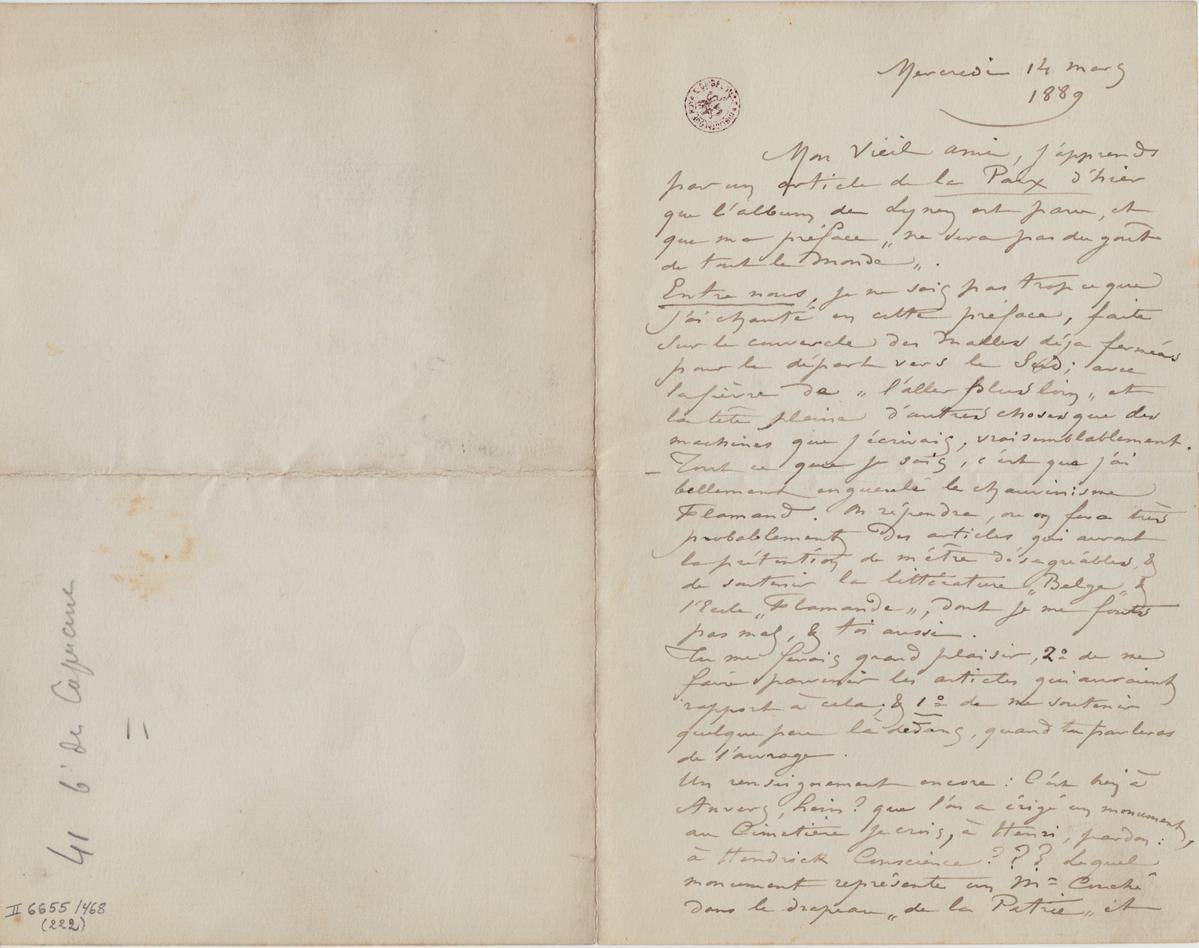 41 bd des Capucine
II 6655/468
(222)
Mercredi 14 mars
1889
Mon Vieil ami, j'apprends
par un article de la Paix d'hier
que l'album de Lynen est paru, et
que ma préface „ne sera pas du goût
de tout le monde„.
Entre nous, je ne sais pas trop ce que
j'ai chanté en cette préface, faite
sur le couvercle des malles déja fermées
pour le départ vers le Sud; avec
la fièvre de „l'aller plus loin„ et
la tête pleine d'autres choses que des
machines que j'écrivais, vraisemblablement.
– Tout ce que je sais, c'est que j'ai
bellement engueulé le chauvinisme
Flamand. On répondra, ou on fera très
probablement des articles qui auront
la prétention de m'être désagréables, &
de soutenir la littérature „Belge„ &
l'Ecole „Flamande„, dont je me fouts
pas mal, & toi aussi.
Tu me ferais grand plaisir, 2º de me
faire parvenir les articles qui auraient
rapport à cela; & 1º de me soutenir
quelque peu là dedans, quand tu parleras
de l'ouvrage.
Un renseignement encore: C'est bien à
Anvers, hein? que l'on a érigé un monument,
au Cimetière je crois, à Henri, pardon:
à Hendrick Conscience??? Lequel
monument représente un Mr Couché
dans le drapeau „de la Patrie„ et